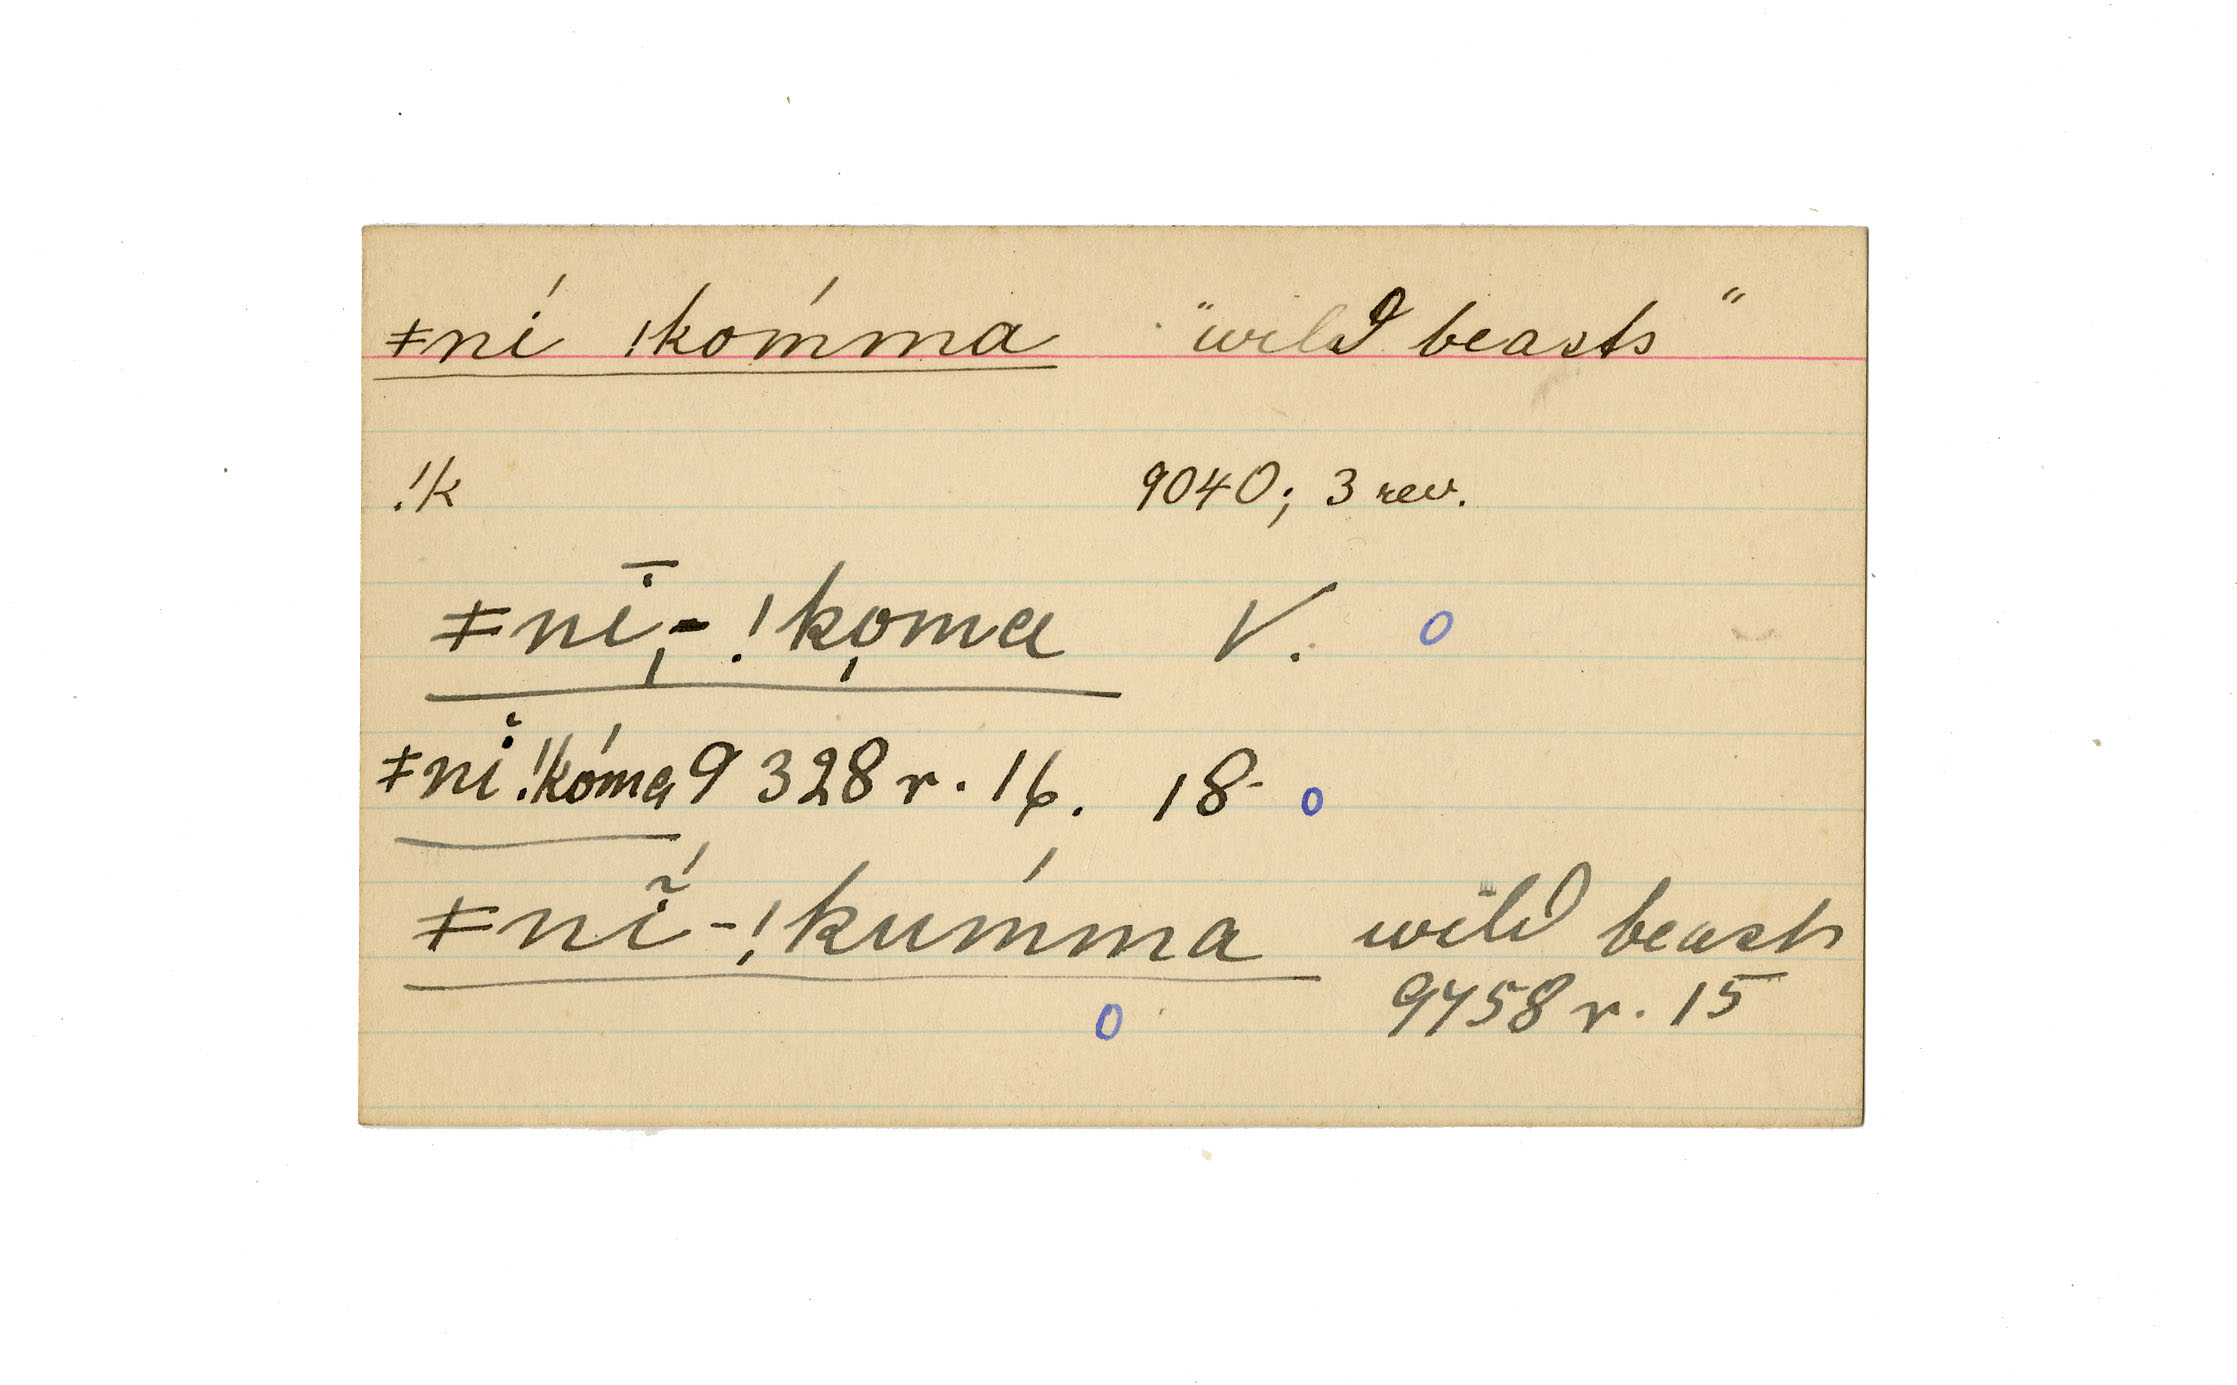 ǂní !kómma "wild beasts"
!k 9040; 3 rev.
ǂnī̩-!ko̩ma V. o
ǂnĭ !kóma 9328 r. 16. 18- o
ǂnĩ́-!kúmma wild beasts
o 9458 r. 15